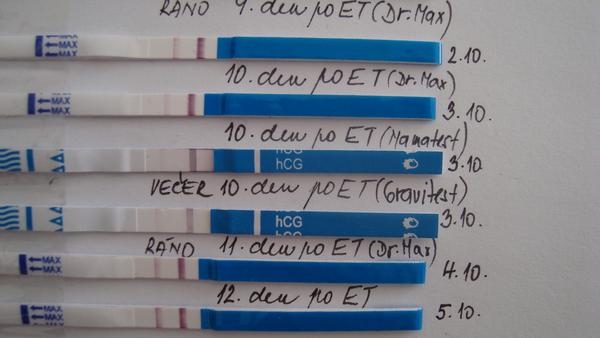 RÁNO 9. den po ET (Dr.Max)
←MAX
←MAX
←MAX 2.10.
10. den po ET (Dr.Max)
←MAX
←MAX 3.10.
10. den po ET (Mamatest)
hCG
hCG 3.10.
VEČER 10. den po ET (Gravitest)
hCG
hCG 3.10.
RÁNO 11. den po ET (Dr.Max)
←MAX
←MAX 4.10.
12. den po ET
←MAX
←MAX 5.10.